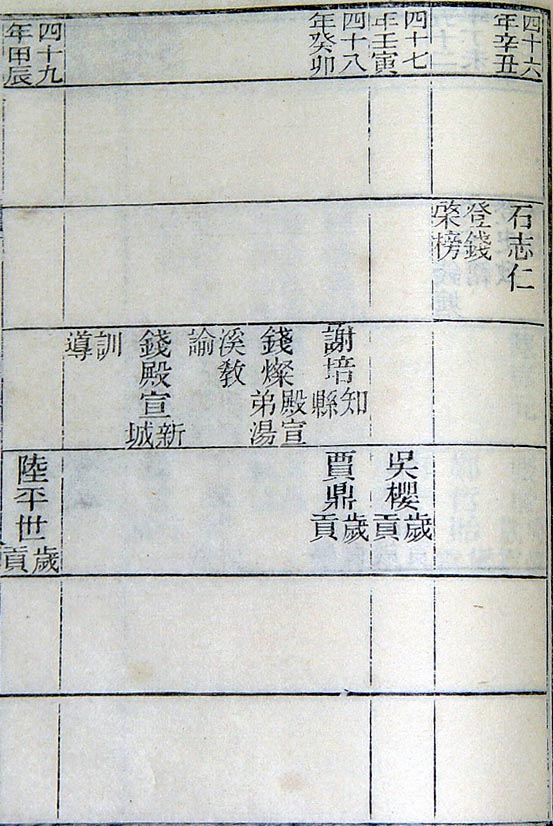 四十六
年辛丑
石志仁
登錢
棨榜
四十七
年壬寅
吳櫻歲
貢
四十八
年癸卯
謝培知
縣
錢燦殿宣
弟湯
溪教
諭
錢殿宣新
城
訓
導
賈鼎歲
貢
四十九
年田辰
陸平世歲
貢